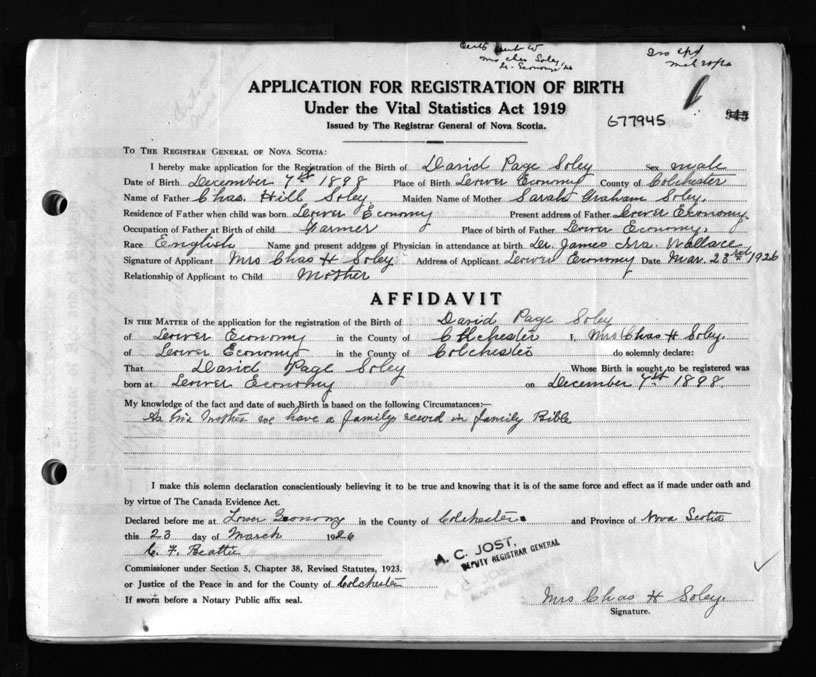 Mrs Chas Soley
APPLICATION FOR REGISTRATION OF BIRTH
Under the Vital Statistics Act 1919
Issued by The Registrar General of Nova Scotia.
677945
945
TO THE REGISTRAR GENERAL OF NOVA SCOTIA:
I hereby make application for the Registration of the Birth of David Page Soley Sex male
Date of Birth December 7th 1898 Place of Birth Lower Economy County of Colchester
Name of Father Chas. Hill Soley Maiden Name of Mother Sarah Graham Soley.
Residence of Father when child was born Lower Economy Present address of Father Lower Economy.
Occupation of Father at Birth of child Farmer Place of birth of Father Lower Economy.
Race English Name and present address of Physician in attendance at birth Dr. James Ira Wallace
Signature of Applicant Mrs Chas H Soley Address of Applicant Lower Economy Date Mar. 23rd 1926
Relationship of Applicant to Child Mother
AFFIDAVIT
IN THE MATTER of the application for the registration of the Birth of David Page Soley
of Lower Economy in the County of Colchester I, Mrs Chas H Soley.
of Lower Economy in the County of Colchester do solemnly declare:
That David Page Soley Whose Birth is sought to be registered was
born at Lower Economy on December 7th 1898.
My knowledge of the fact and date of such Birth is based on the following Circumstances:—
As his Mother we have a family record in family Bible
I make this solemn declaration conscientiously believing it to be true and knowing that it is of the same force and effect as if made under oath and
by virtue of The Canada Evidence Act.
Declared before me at Lower Economy in the County of Colchester and Province of Nova Scotia
this 23 day of March 1926
C. F. Beattie
A. C. JOST,
DEPUTY REGISTRAR GENERAL
Commissioner under Section 5, Chapter 38, Revised Statutes, 1923.
or Justice of the Peace in and for the County of Colchester
If sworn before a Notary Public affix seal.
Mrs Chas H Soley.
Signature.